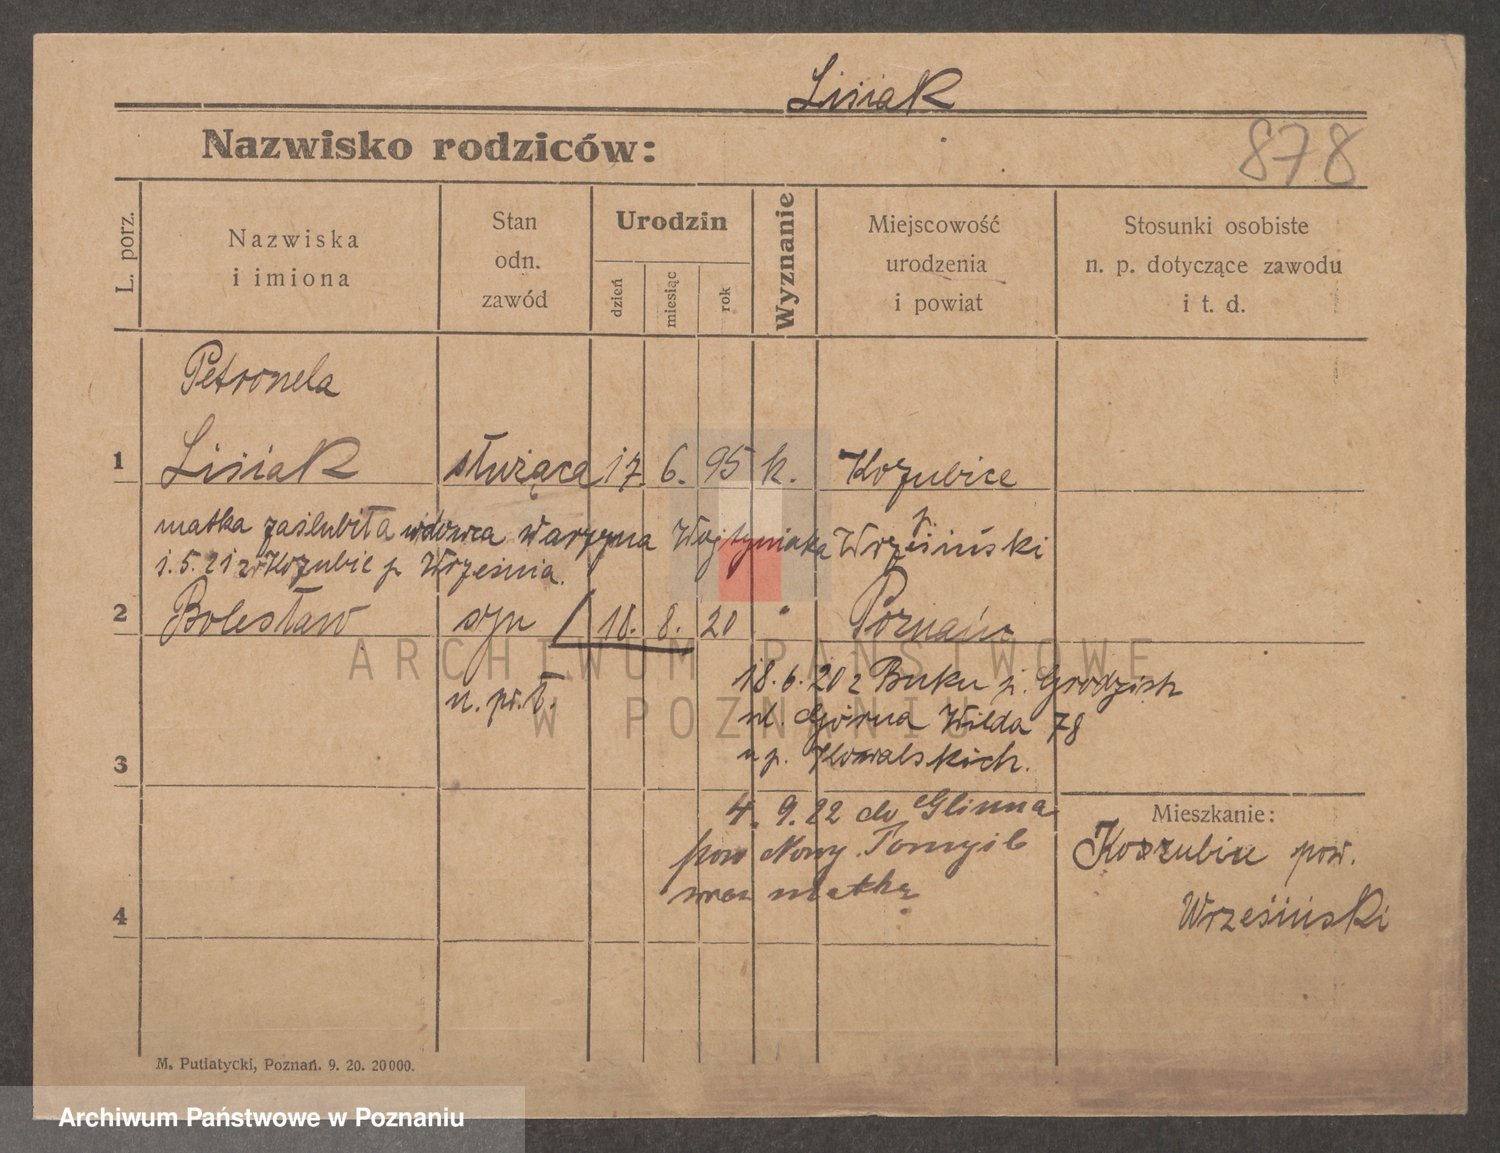 Lisiak
Nazwisko rodziców:
878
L. porz.
Nazwiska
i imiona
Stan
odn.
zawód
Urodzin
dzień
miesiąc
rok
Wyznanie
Miejscowość
urodzenia
i powiat
Stosunki osobiste
n. p. dotyczące zawodu
i t. d.
Petronela
1 Lisiak służąca 17. 6. 95 k. Kozubice
p.
matka zaślubiła wdowca Warzyna Wojtyniaka Wrzesiński
1.5.21 z Kozubic p. Września.
2 Bolesław syn 18. 8. 20 " Poznań
ARCHIWUM PAŃSTWOWE
W POZNANIU
18.6.20 z Buku p. Grodzisk
n. pr. ł. ul. Górna Wilda 78
3 u p. Kowalskich.
4. 9. 22 do Glinna
pow Nowy Tomyśl
wraz matką
Mieszkanie:
Kozubice pow.
Wrzesiński
4
M. Putiatycki, Poznań. 9. 20. 20000.
Archiwum Państwowe w Poznaniu